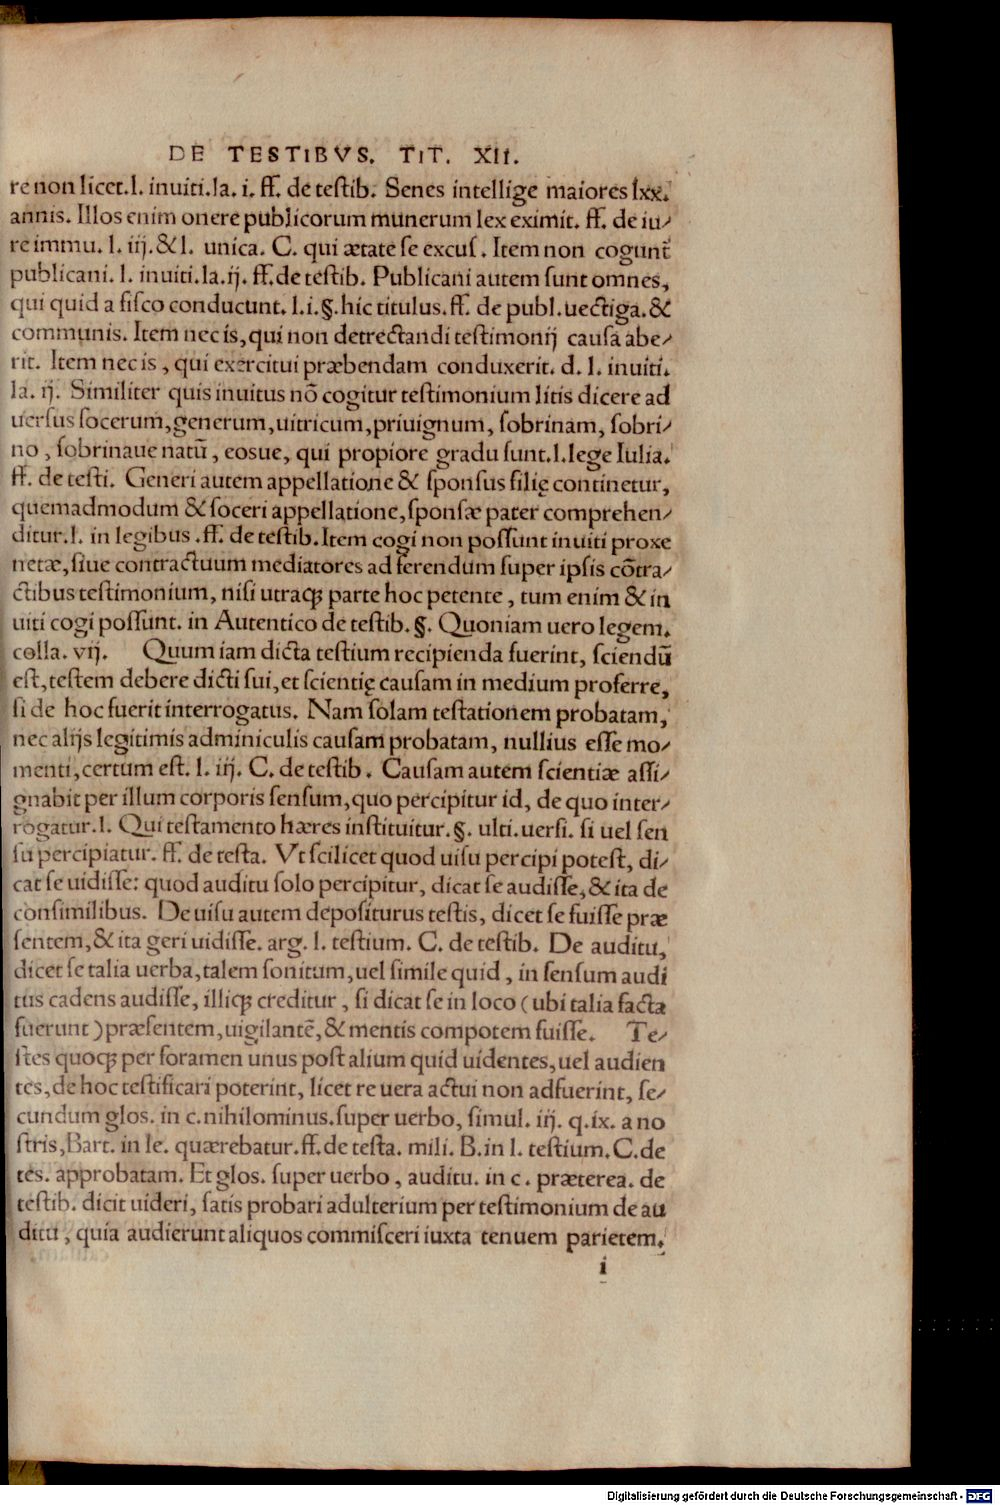 DE TESTIBVS. TIT. XII.
re non licet. l. inuiti. la. i. ff. de testib. Senes intellige maiores lxx.
annis. Illos enim onere publicorum munerum lex eximit. ff. de iu⸗
re immu. l. iij. & l. unica. C. qui ætate se excus. Item non cogunt̃
publicani. l. inuiti. la. ij. ff. de testib. Publicani autem sunt omnes,
qui quid a fisco conducunt. l. i. §. hic titulus. ff. de publ. uectiga. &
communis. Item nec is, qui non detrectandi testimonij causa abe⸗
rit. Item nec is, qui exercitui præbendam conduxerit. d. l. inuiti.
la. ij. Similiter quis inuitus nõ cogitur testimonium litis dicere ad
uersus socerum, generum, uitricum, priuignum, sobrinam, sobri⸗
no, sobrinaue natũ, eosue, qui propiore gradu sunt. l. lege Iulia.
ff. de testi. Generi autem appellatione & sponsus filię continetur,
quemadmodum & soceri appellatione, sponsæ pater comprehen⸗
ditur. l. in legibus. ff. de testib. Item cogi non possunt inuiti proxe
netæ, siue contractuum mediatores ad ferendum super ipsis cõtra⸗
ctibus testimonium, nisi utraq; parte hoc petente, tum enim & in
uiti cogi possunt. in Autentico de testib. §. Quoniam uero legem.
colla. vij. Quum iam dicta testium recipienda fuerint, sciendũ
est, testem debere dicti sui, et scientię causam in medium proferre,
si de hoc fuerit interrogatus. Nam solam testationem probatam,
nec alijs legitimis adminiculis causam probatam, nullius esse mo⸗
menti, certum est. l. iij. C. de testib. Causam autem scientiæ assi⸗
gnabit per illum corporis sensum, quo percipitur id, de quo inter⸗
rogatur. l. Qui testamento hæres instituitur. §. ulti. uersi. si uel sen
su percipiatur. ff. de testa. Vt scilicet quod uisu percipi potest, di⸗
cat se uidisse: quod auditu solo percipitur, dicat se audisse, & ita de
consimilibus. De uisu autem depositurus testis, dicet se fuisse præ
sentem, & ita geri uidisse. arg. l. testium. C. de testib. De auditu,
dicet se talia uerba, talem sonitum, uel simile quid, in sensum audi
tus cadens audisse, illiq; creditur, si dicat se in loco (ubi talia facta
fuerunt) præsentem, uigilantẽ, & mentis compotem fuisse. Te⸗
stes quoq; per foramen unus post alium quid uidentes, uel audien
tes, de hoc testificari poterint, licet re uera actui non adfuerint, se⸗
cundum glos. in c. nihilominus. super uerbo, simul. iij. q. ix. a no
stris, Bart. in le. quærebatur. ff. de testa. mili. B. in l. testium. C. de
tes. approbatam. Et glos. super uerbo, auditu. in c. præterea. de
testib. dicit uideri, satis probari adulterium per testimonium de au
ditu, quia audierunt aliquos commisceri iuxta tenuem parietem.
i
Digitalisierung gefördert durch die Deutsche Forschungsgemeinschaft - DFG